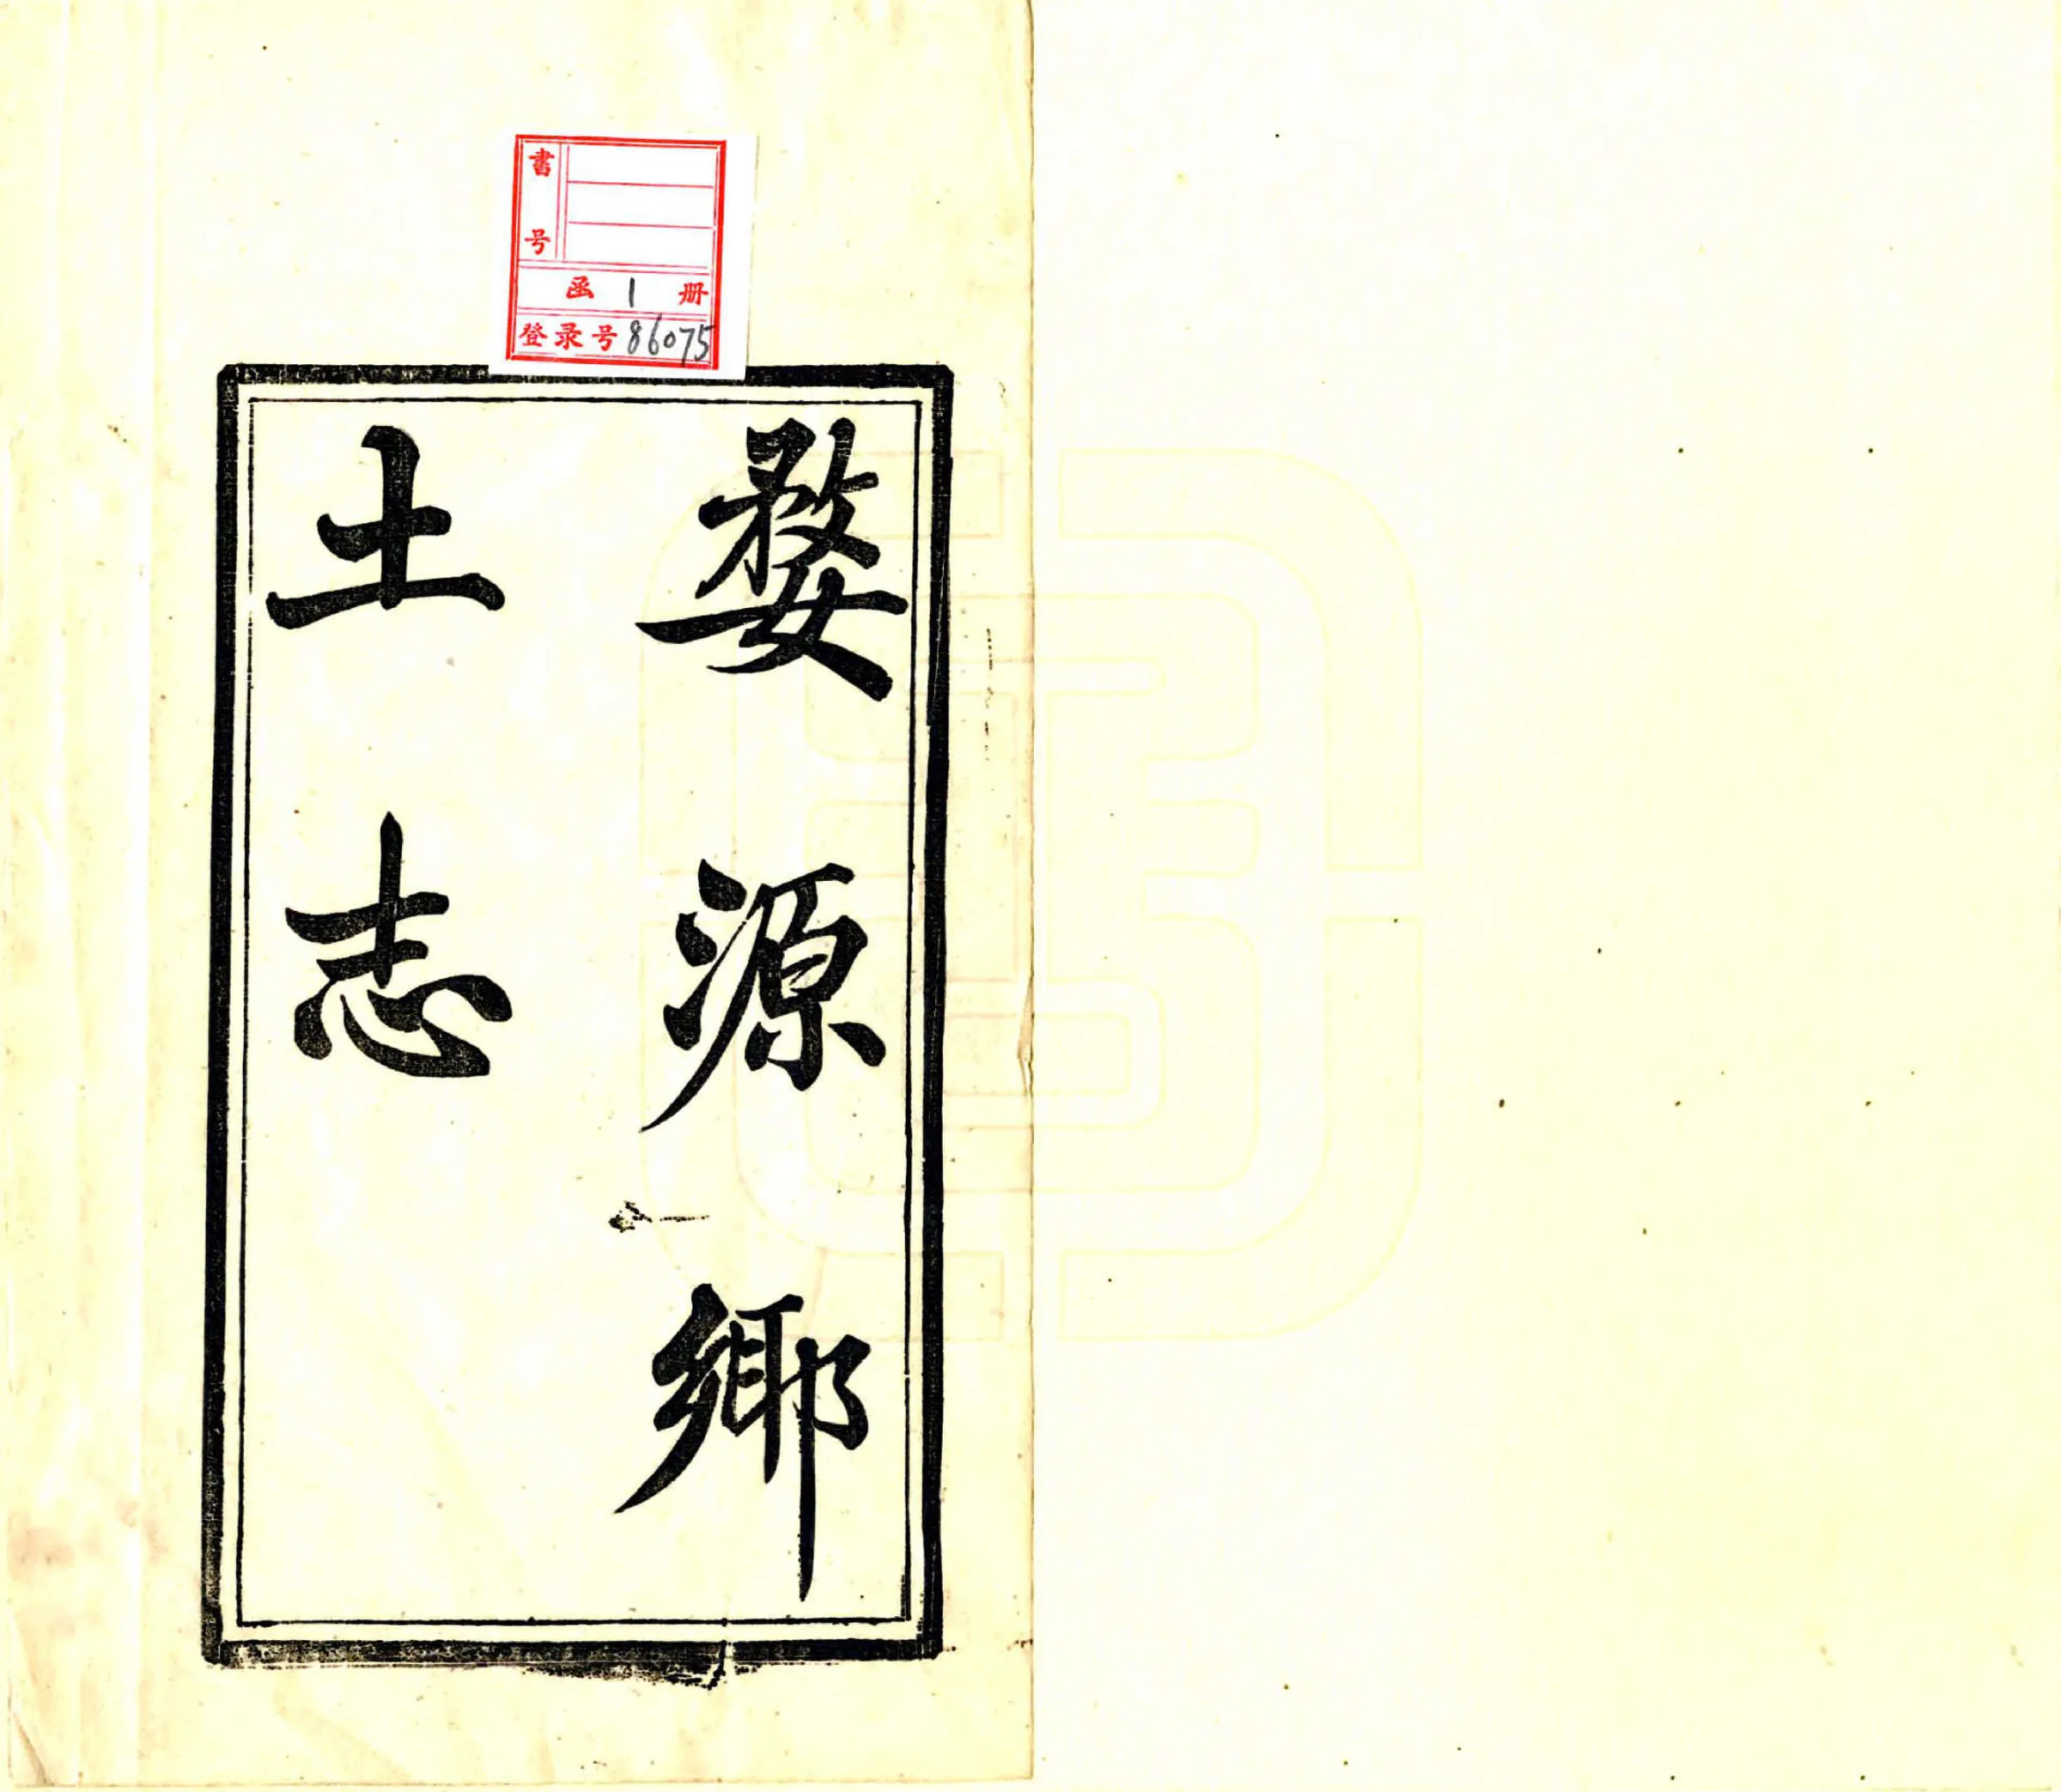 婺源鄉
土志
書号
函 1 册
登录号 86075